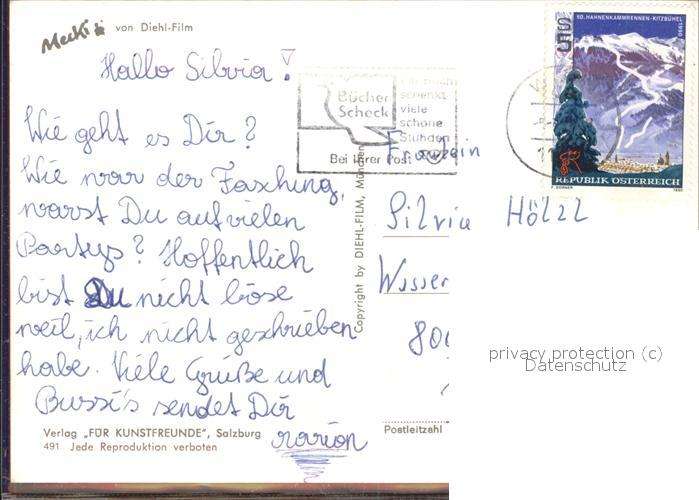 Mecki von Diehl-Film
Hallo Silvia!
Wie geht es Dir?
Wie war der Fasching,
warst Du auf vielen
Partys? Hoffentlich
bist Du nicht böse
weil, ich nicht geschrieben
habe. Viele Grüße und
Bussi's sendet Dir
Verlag „FÜR KUNSTFREUNDE", Salzburg
491 Jede Reproduktion verboten
Copyright by DIEHL-FILM, München
Bücher
Scheck
schenkt
viele
schöne
Stunden
Bei Ihrer Post
50. HAHNENKAMMRENNEN-KITZBÜHEL
1990
S5
REPUBLIK ÖSTERREICH
Fräulein
Silvia Hölzl
Wasser
800
Postleitzahl
privacy protection (c)
Datenschutz